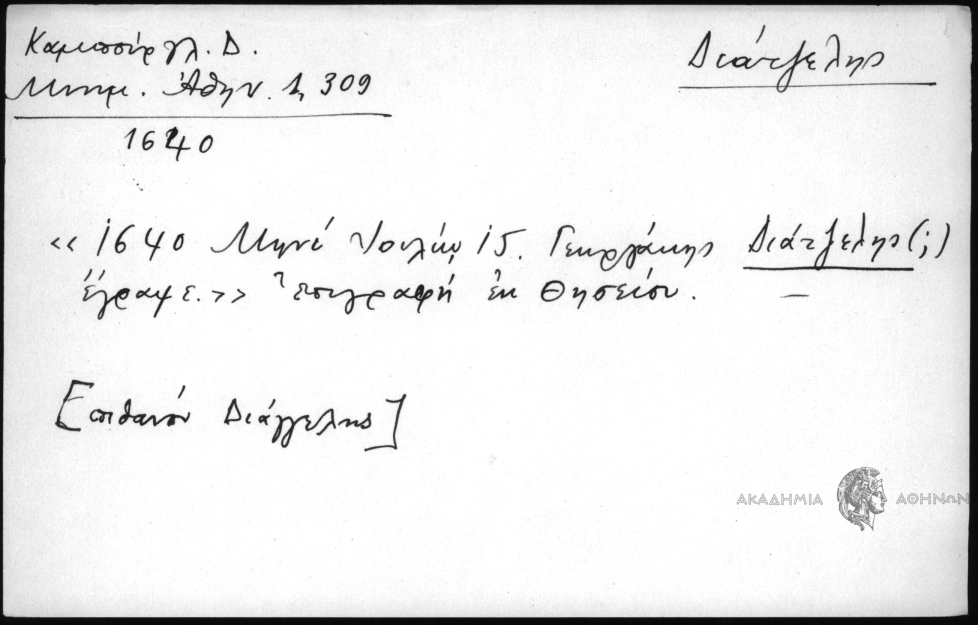 Καμπούργλ. Δ.
Μνημ. Ἀθην. 1, 309
1640
Διάτζελης
<< 1640 Μηνί Ἰουλίῳ 15. Γεωργάκης Διάτζελης (;)
ἔγραψε. >> Ἐπιγραφή ἐκ Θησείου. —
[πιθανόν Διάγγελης]
ΑΚΑΔΗΜΙΑ ΑΘΗΝΩΝ